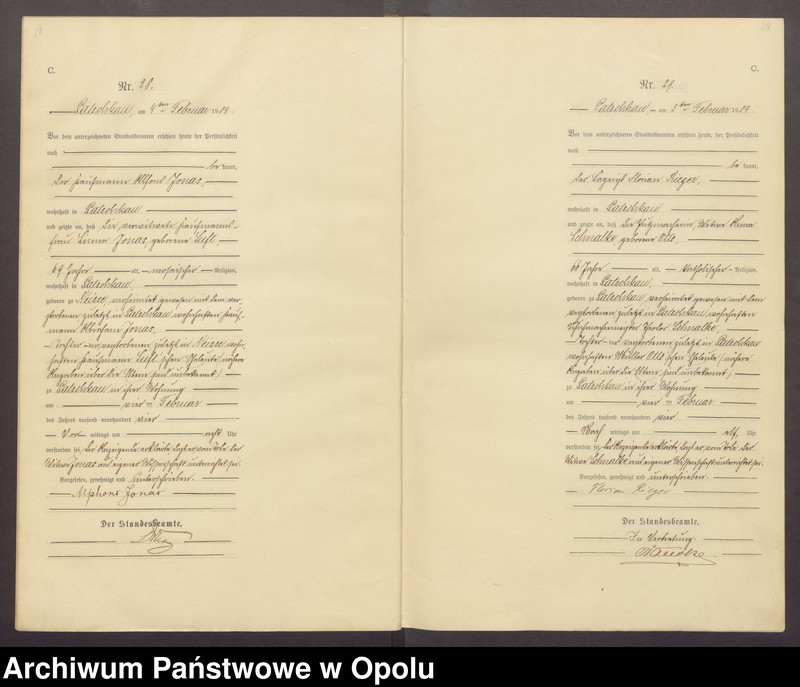 C.
Nr. 28.
Patschkau, am 4ten Februar 1904.
Vor dem unterzeichneten Standesbeamten erschien heute, der Persönlichkeit
nach
be kannt,
der Kaufmann Alfons Jonas,
wohnhaft in Patschkau
und zeigte an, daß die verwitwete Kaufmanns-
frau Jonas, geborene
69 Jahre alt, mosaischer Religion,
wohnhaft in Patschkau,
geboren zu Neisse, verheiratet gewesen mit dem ver-
storbenen zuletzt in Patschkau wohnhaften Kauf-
mann Abraham Jonas,
Tochter der verstorbenen zuletzt in Neisse wohn-
haften Kaufmann schen Eheleute (nähere
Angaben über die Eltern sind unbekannt)
zu Patschkau in ihrer Wohnung
am vier ten Februar
des Jahres tausend neunhundert vier
Vor mittags um acht Uhr
verstorben sei. Der Anzeigende erklärte, daß er vom Tode der
Witwe Jonas aus eigener Wissenschaft unterrichtet sei.
Vorgelesen, genehmigt und unterschrieben.
Alphons Jonas
Der Standesbeamte.
C.
Nr. 29.
Patschkau, am 5ten Februar 1904.
Vor dem unterzeichneten Standesbeamten erschien heute, der Persönlichkeit
nach
be kannt,
der Florian Rieger,
wohnhaft in Patschkau
und zeigte an, daß die Putzmacherin, Witwe Anna
Schmalke, geborene Otto,
66 Jahre alt, katholischer Religion,
wohnhaft in Patschkau,
geboren zu Patschkau, verheiratet gewesen mit dem
verstorbenen zuletzt in Patschkau wohnhaften
Schuhmachermeister Schmalke,
Tochter der verstorbenen zuletzt in Patschkau
wohnhaften Müller Otto'schen Eheleute (nähere
Angaben über die Eltern sind unbekannt)
zu Patschkau in ihrer Wohnung
am vier ten Februar
des Jahres tausend neunhundert vier
Nach mittags um elf Uhr
verstorben sei. Der Anzeigende erklärte, daß er vom Tode der
Witwe Schmalke aus eigener Wissenschaft unterrichtet sei.
Vorgelesen, genehmigt und unterschrieben.
Florian Rieger
Der Standesbeamte.
In Vertretung.
Archiwum Państwowe w Opolu